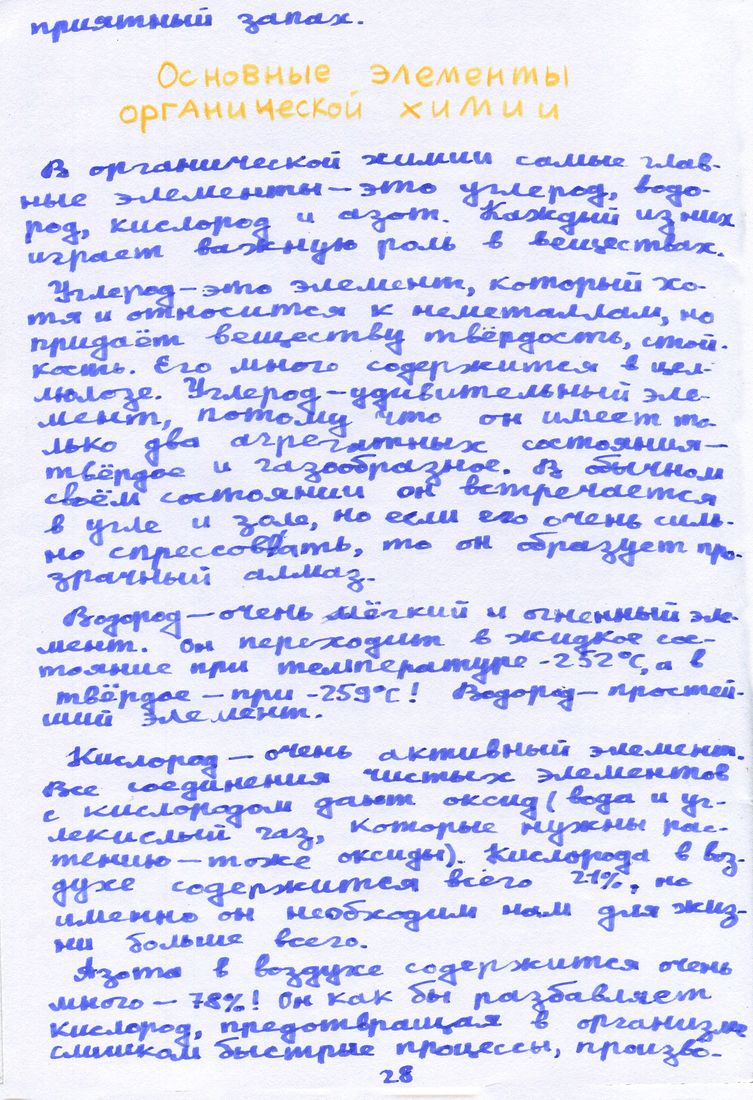 приятный запах.
Основные элементы
органической химии
В органической химии самые глав-
ные элементы — это углерод, водо-
род, кислород и азот. Каждый из них
играет важную роль в веществах.
Углерод — это элемент, который хо-
тя и относится к неметаллам, но
придаёт веществу твёрдость, стой-
кость. Его много содержится в цел-
люлозе. Углерод — удивительный эле-
мент, потому что он имеет то-
лько два агрегатных состояния —
твёрдое и газообразное. В обычном
своём состоянии он встречается
в угле и золе, но если его очень силь-
но спрессовать, то он образует про-
зрачный алмаз.
Водород — очень лёгкий и огненный эле-
мент. Он переходит в жидкое сос-
тояние при температуре -252°С, а в
твёрдое — при -259°С! Водород — простей-
ший элемент.
Кислород — очень активный элемент.
Все соединения чистых элементов
с кислородом дают оксид (вода и уг-
лекислый газ, которые нужны рас-
тению — тоже оксиды). Кислорода в воз-
духе содержится всего 21%, но
именно он необходим нам для жиз-
ни больше всего.
Азота в воздухе содержится очень
много — 78%! Он как бы разбавляет
кислород, предотвращая в организме
слишком быстрые процессы, произво-
28